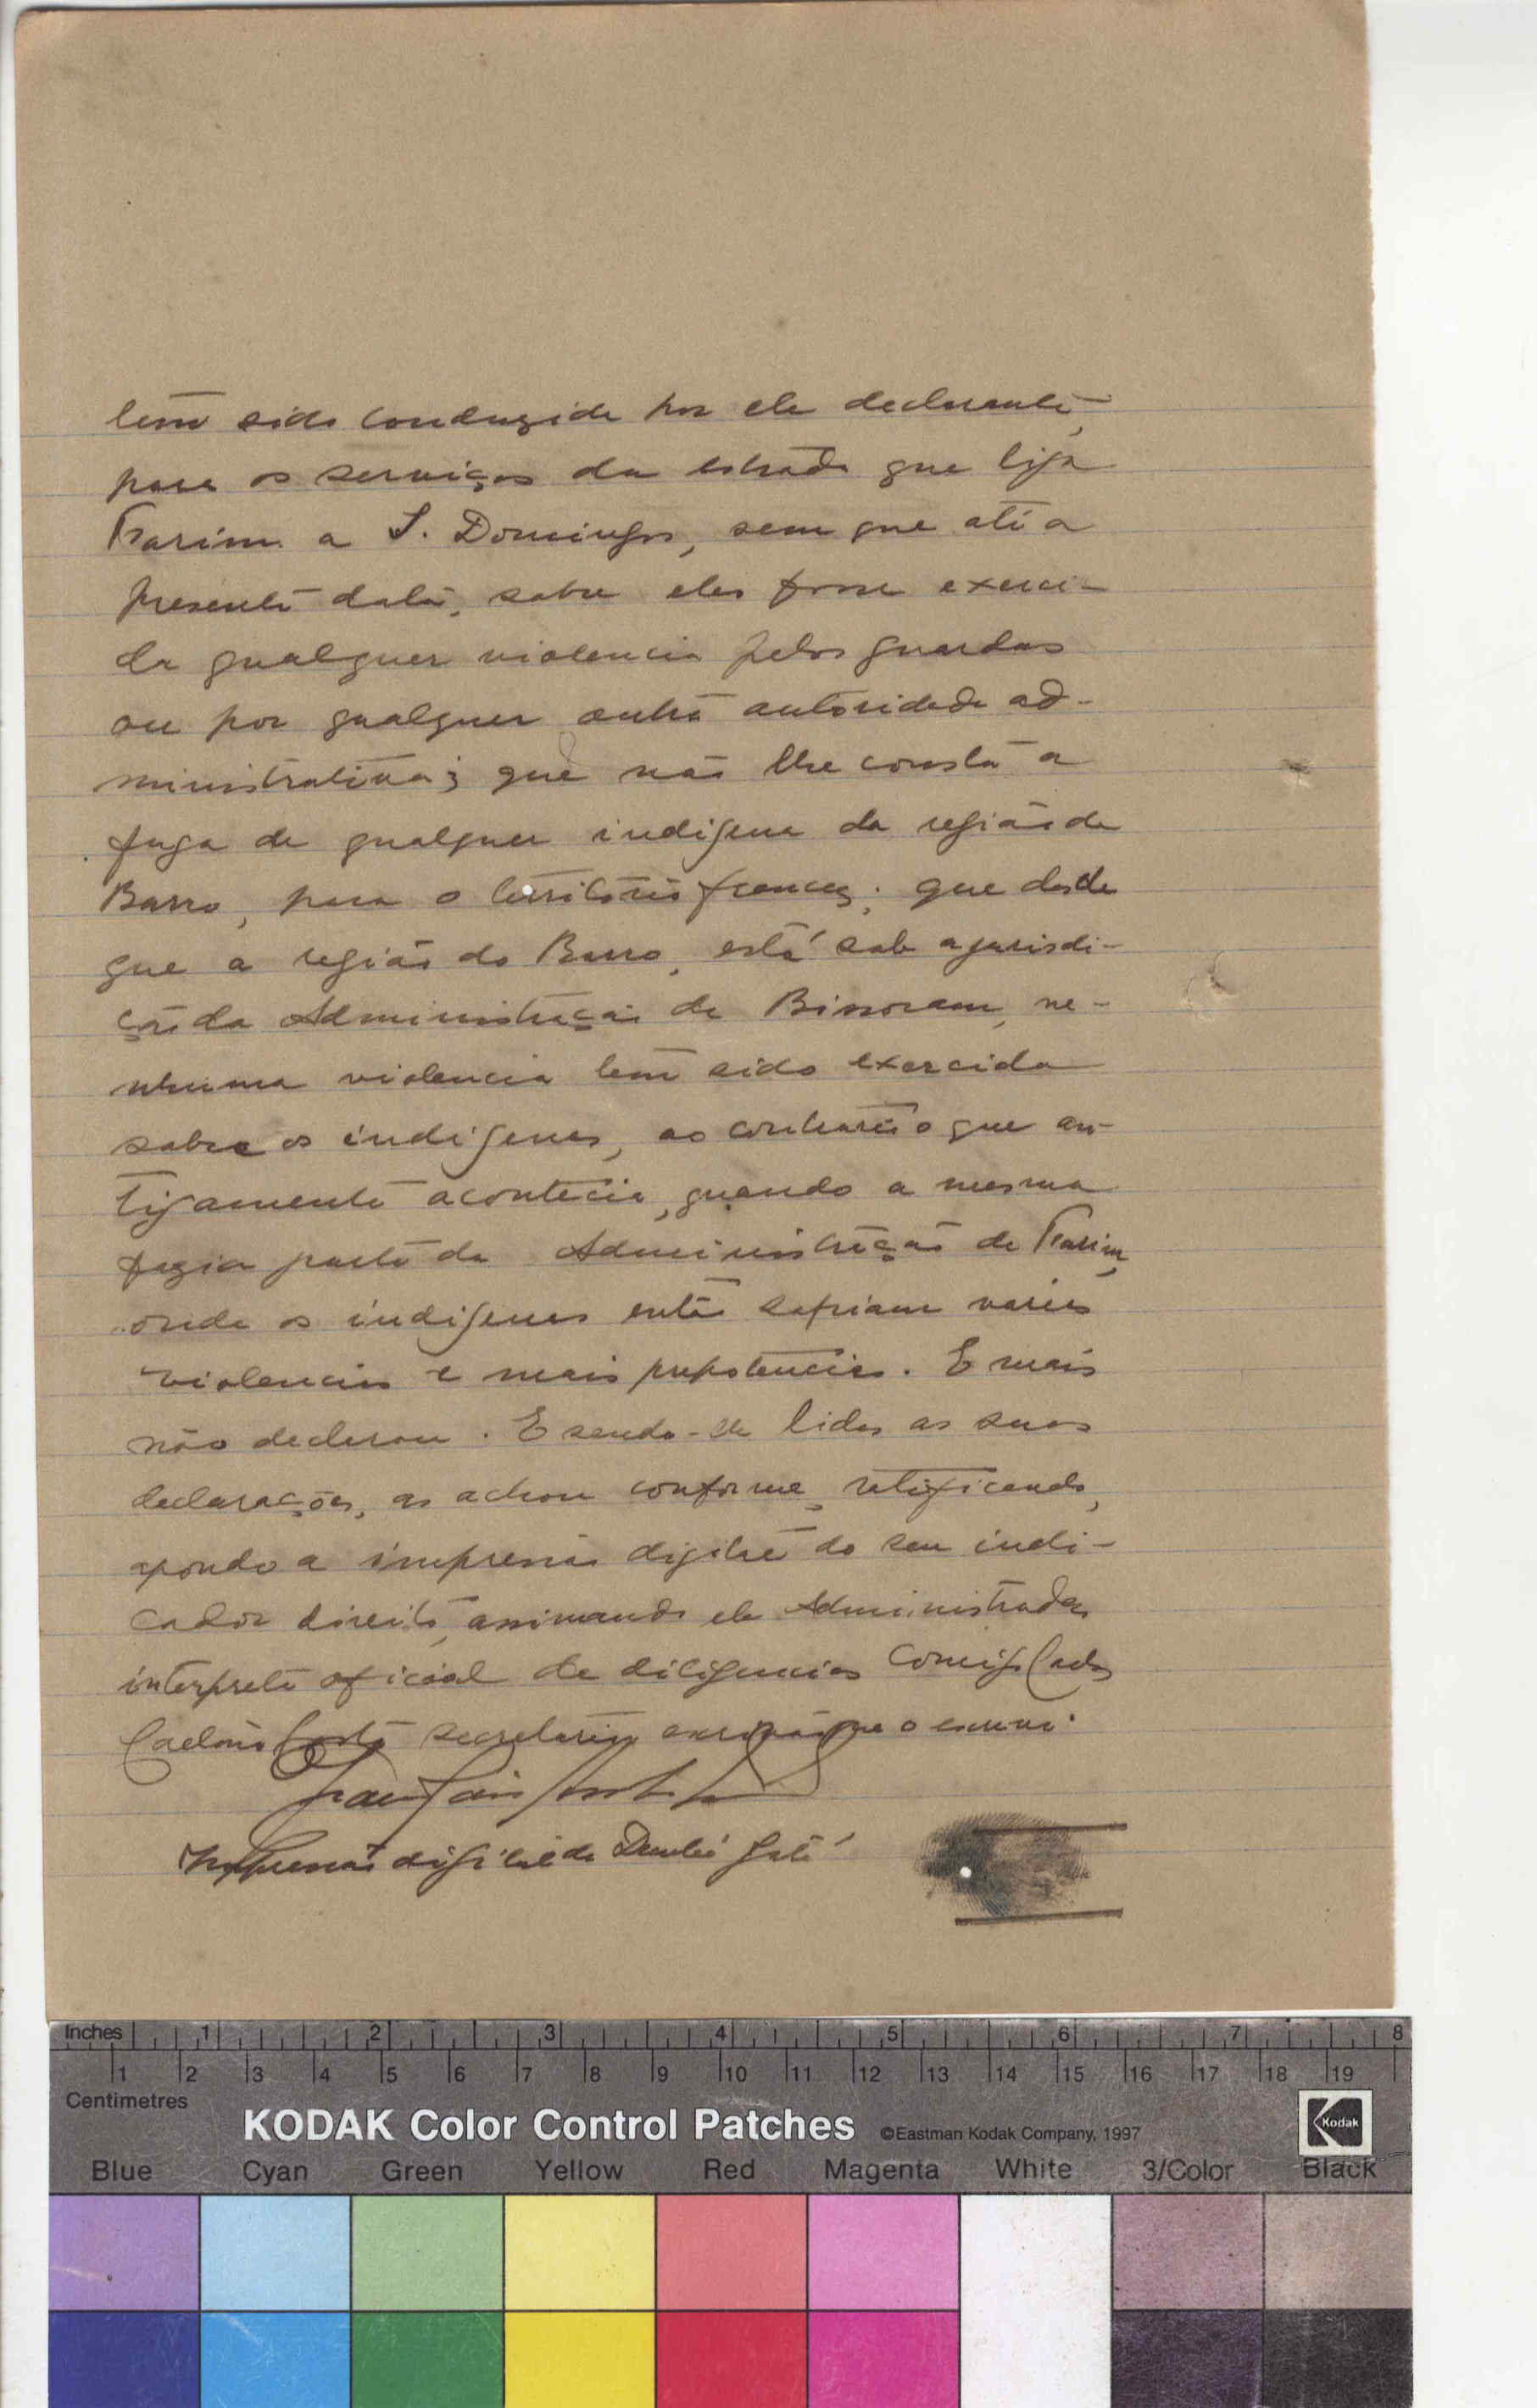 tem sido conduzida por ele declarante,
para os serviços da estrada que liga
Farim a S. Domingos, sem que até a
presente data, sobre eles fosse exerci-
da qualquer violencia pelos guardas
ou por qualquer outra autoridade ad-
ministrativa; que não lhe consta a
fuga de qualquer indigena da região de
Barro, para o territorio francez; que desde
que a região do Barro, está sob a jurisdi-
ção da Administração de Bissoram, ne-
nhuma violencia tem sido exercida
sobre os indigenas, ao contrario o que an-
tigamente acontecia, quando a mesma
fazia parte da Administração de Farim,
onde os indigenas então sofriam varias
violencias e mais prepotencias. E mais
não declarou. E sendo-lhe lidas as suas
declarações, as achou conforme, retificando,
apondo a impressão digital do seu indi-
cador direito, assinando ele Administrador,
interprete oficial de diligencias comigo
Caetano Costa secretario escrivão que o escrevi.
Impressão digital de
Inches 1 2 3 4 5 6 7 8
1 2 3 4 5 6 7 8 9 10 11 12 13 14 15 16 17 18 19
Centimetres
KODAK Color Control Patches ©Eastman Kodak Company, 1997 Kodak
Blue Cyan Green Yellow Red Magenta White 3/Color Black